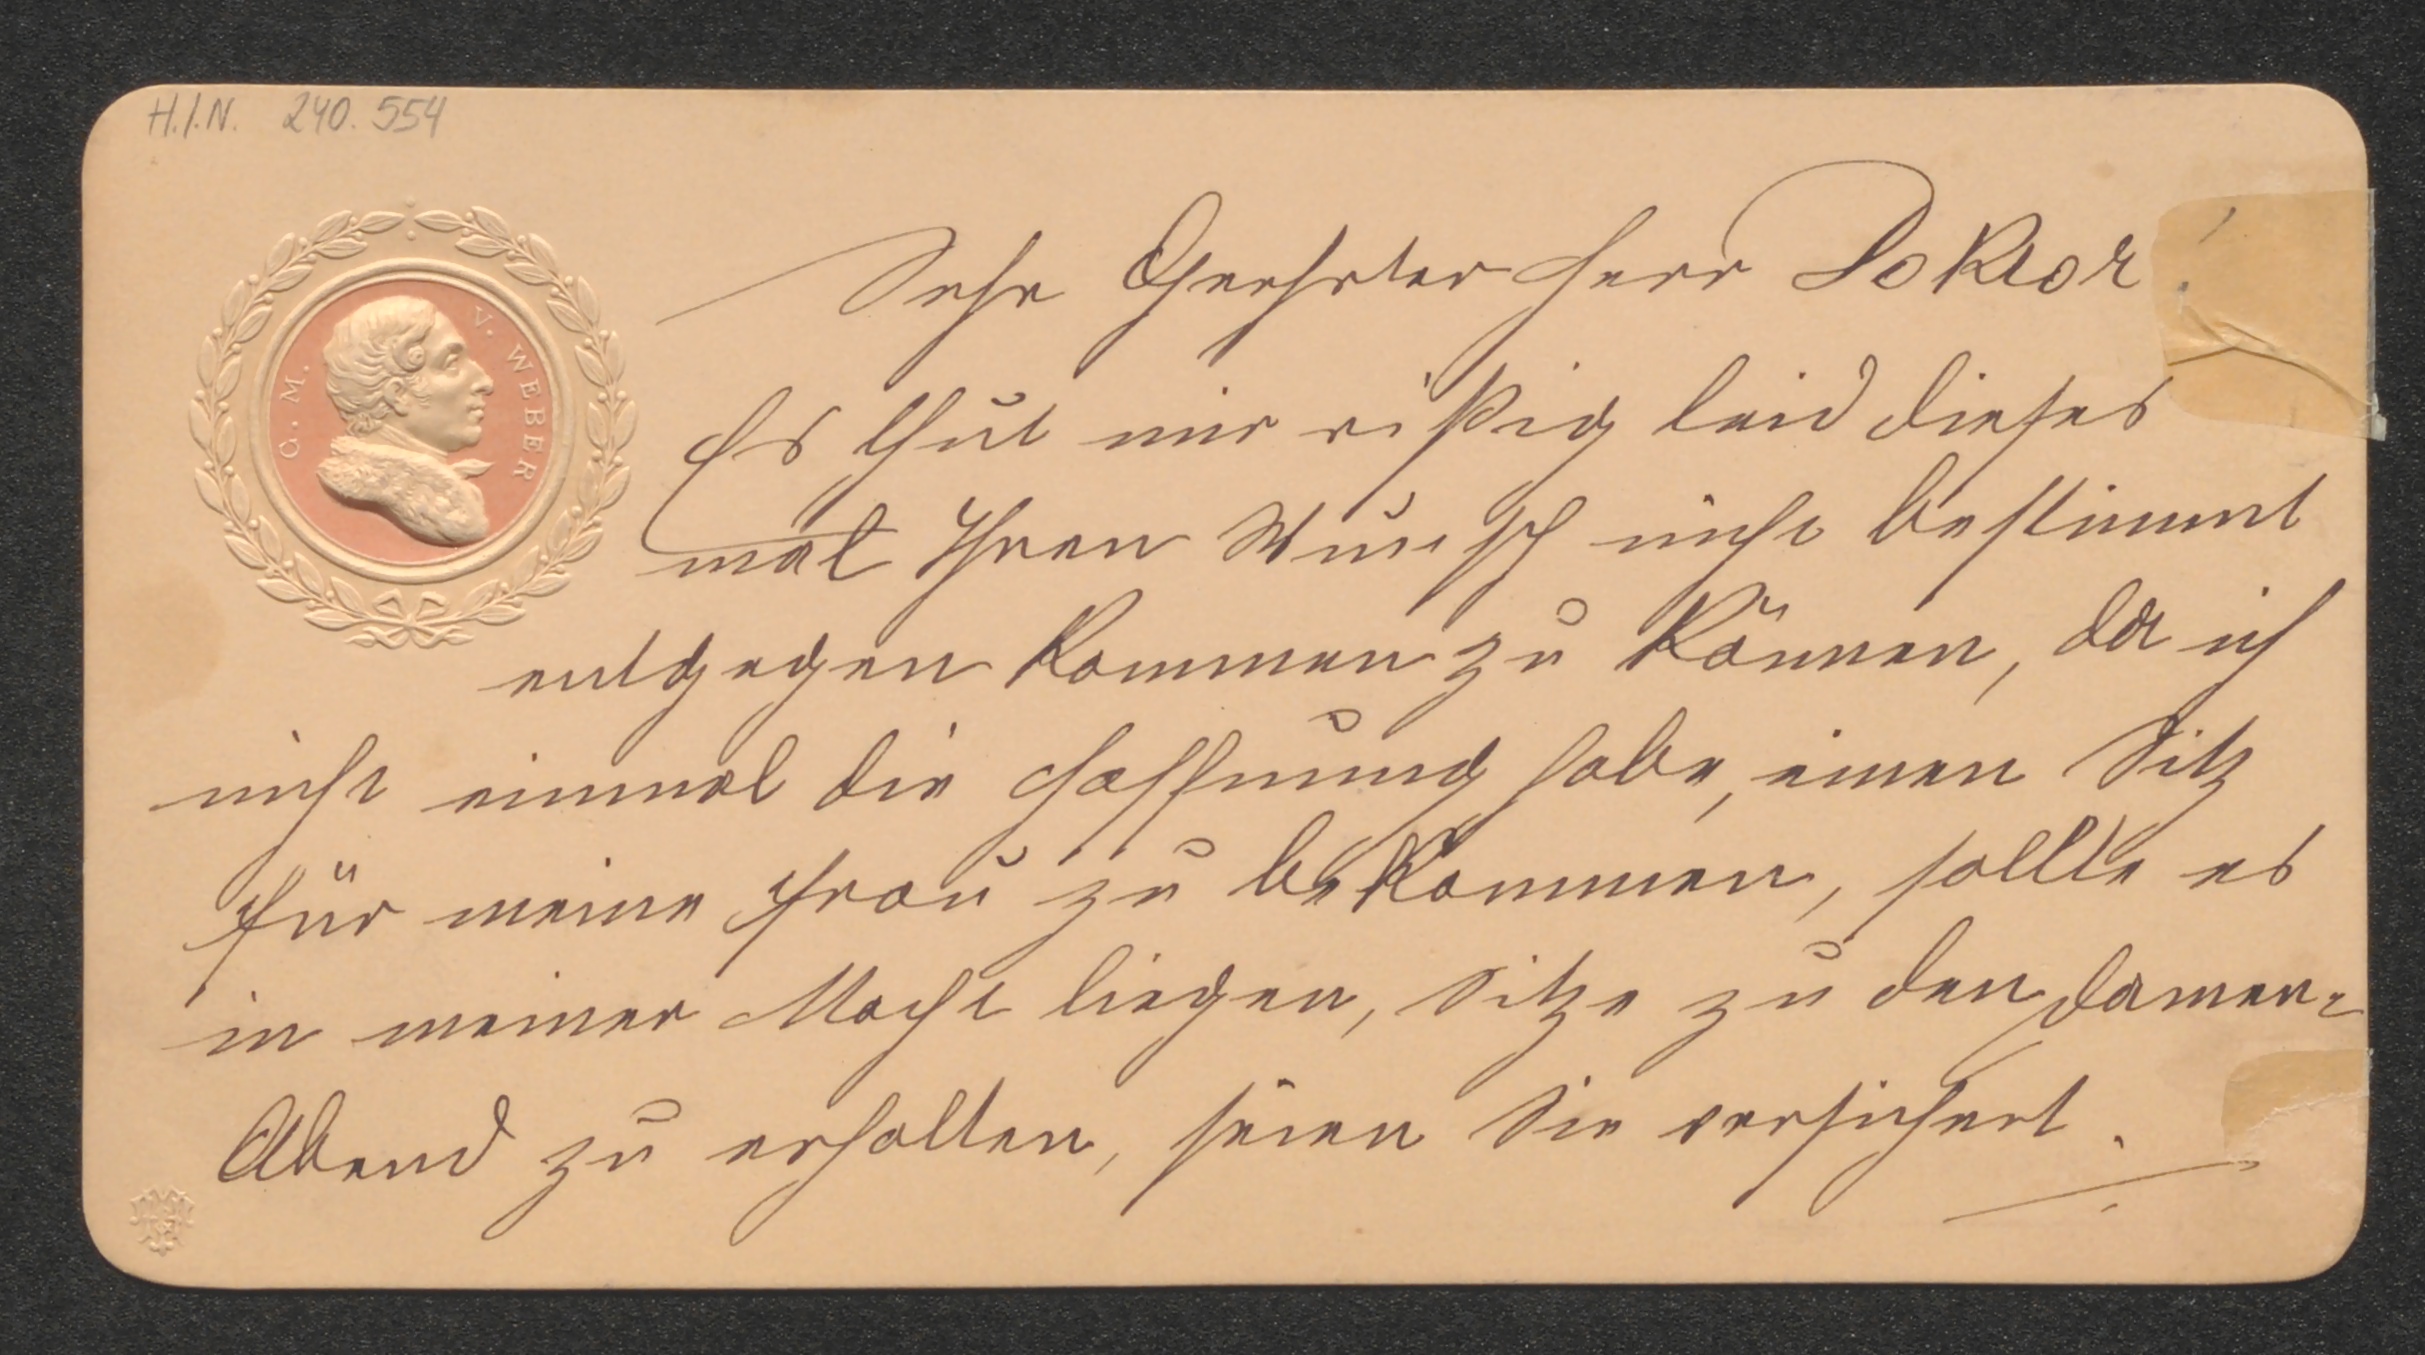 H.I.N. 240.554
C. M. V. WEBER
Sehr Geehrter Herr Doktor!
Es thut mir rießig leid dieses
mal Ihren Wunsch nicht bestimmt
entgegen kommen zu können, da ich
nicht einmal die Hoffnung habe, einen Sitz
für meine Frau zu bekommen, sollte es
in meiner Macht liegen, Sitze zu den Damen-
Abend zu erhalten, seien Sie versichert.